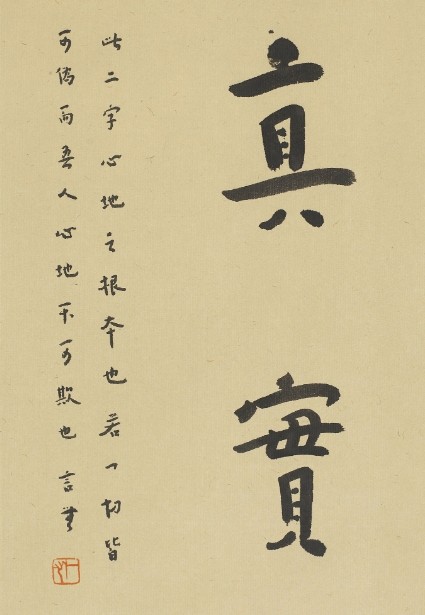 真實
此二字心地之根本也若一切皆
可僞而吾人心地不可欺也言